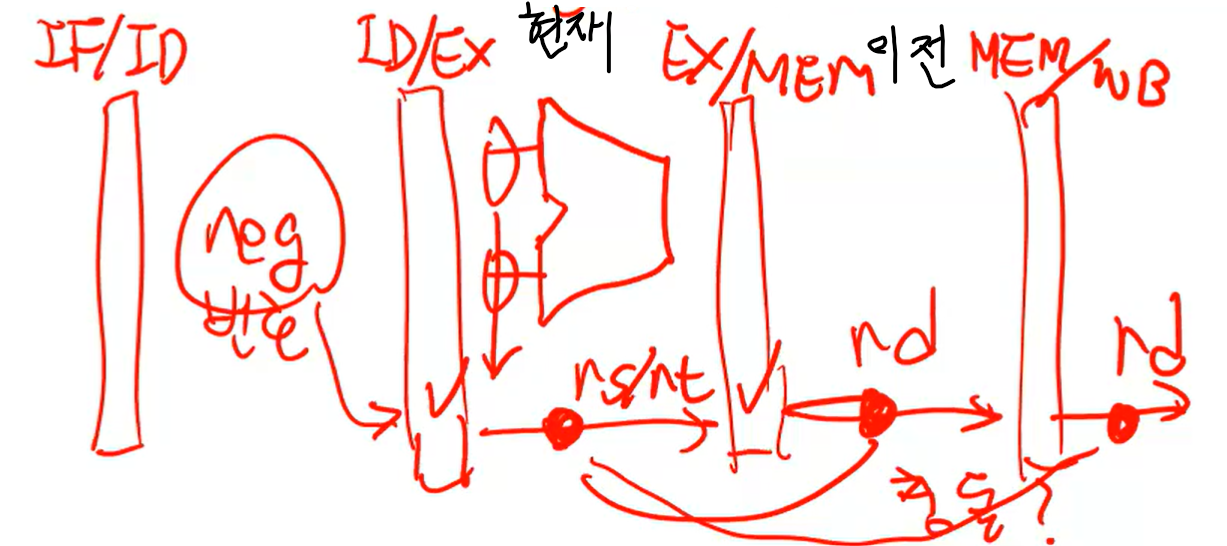 IF/ID
ID/EX
현재
EX/MEM
이전
MEM/WB
reg
번호
rs/rt
rd
rd
충돌?